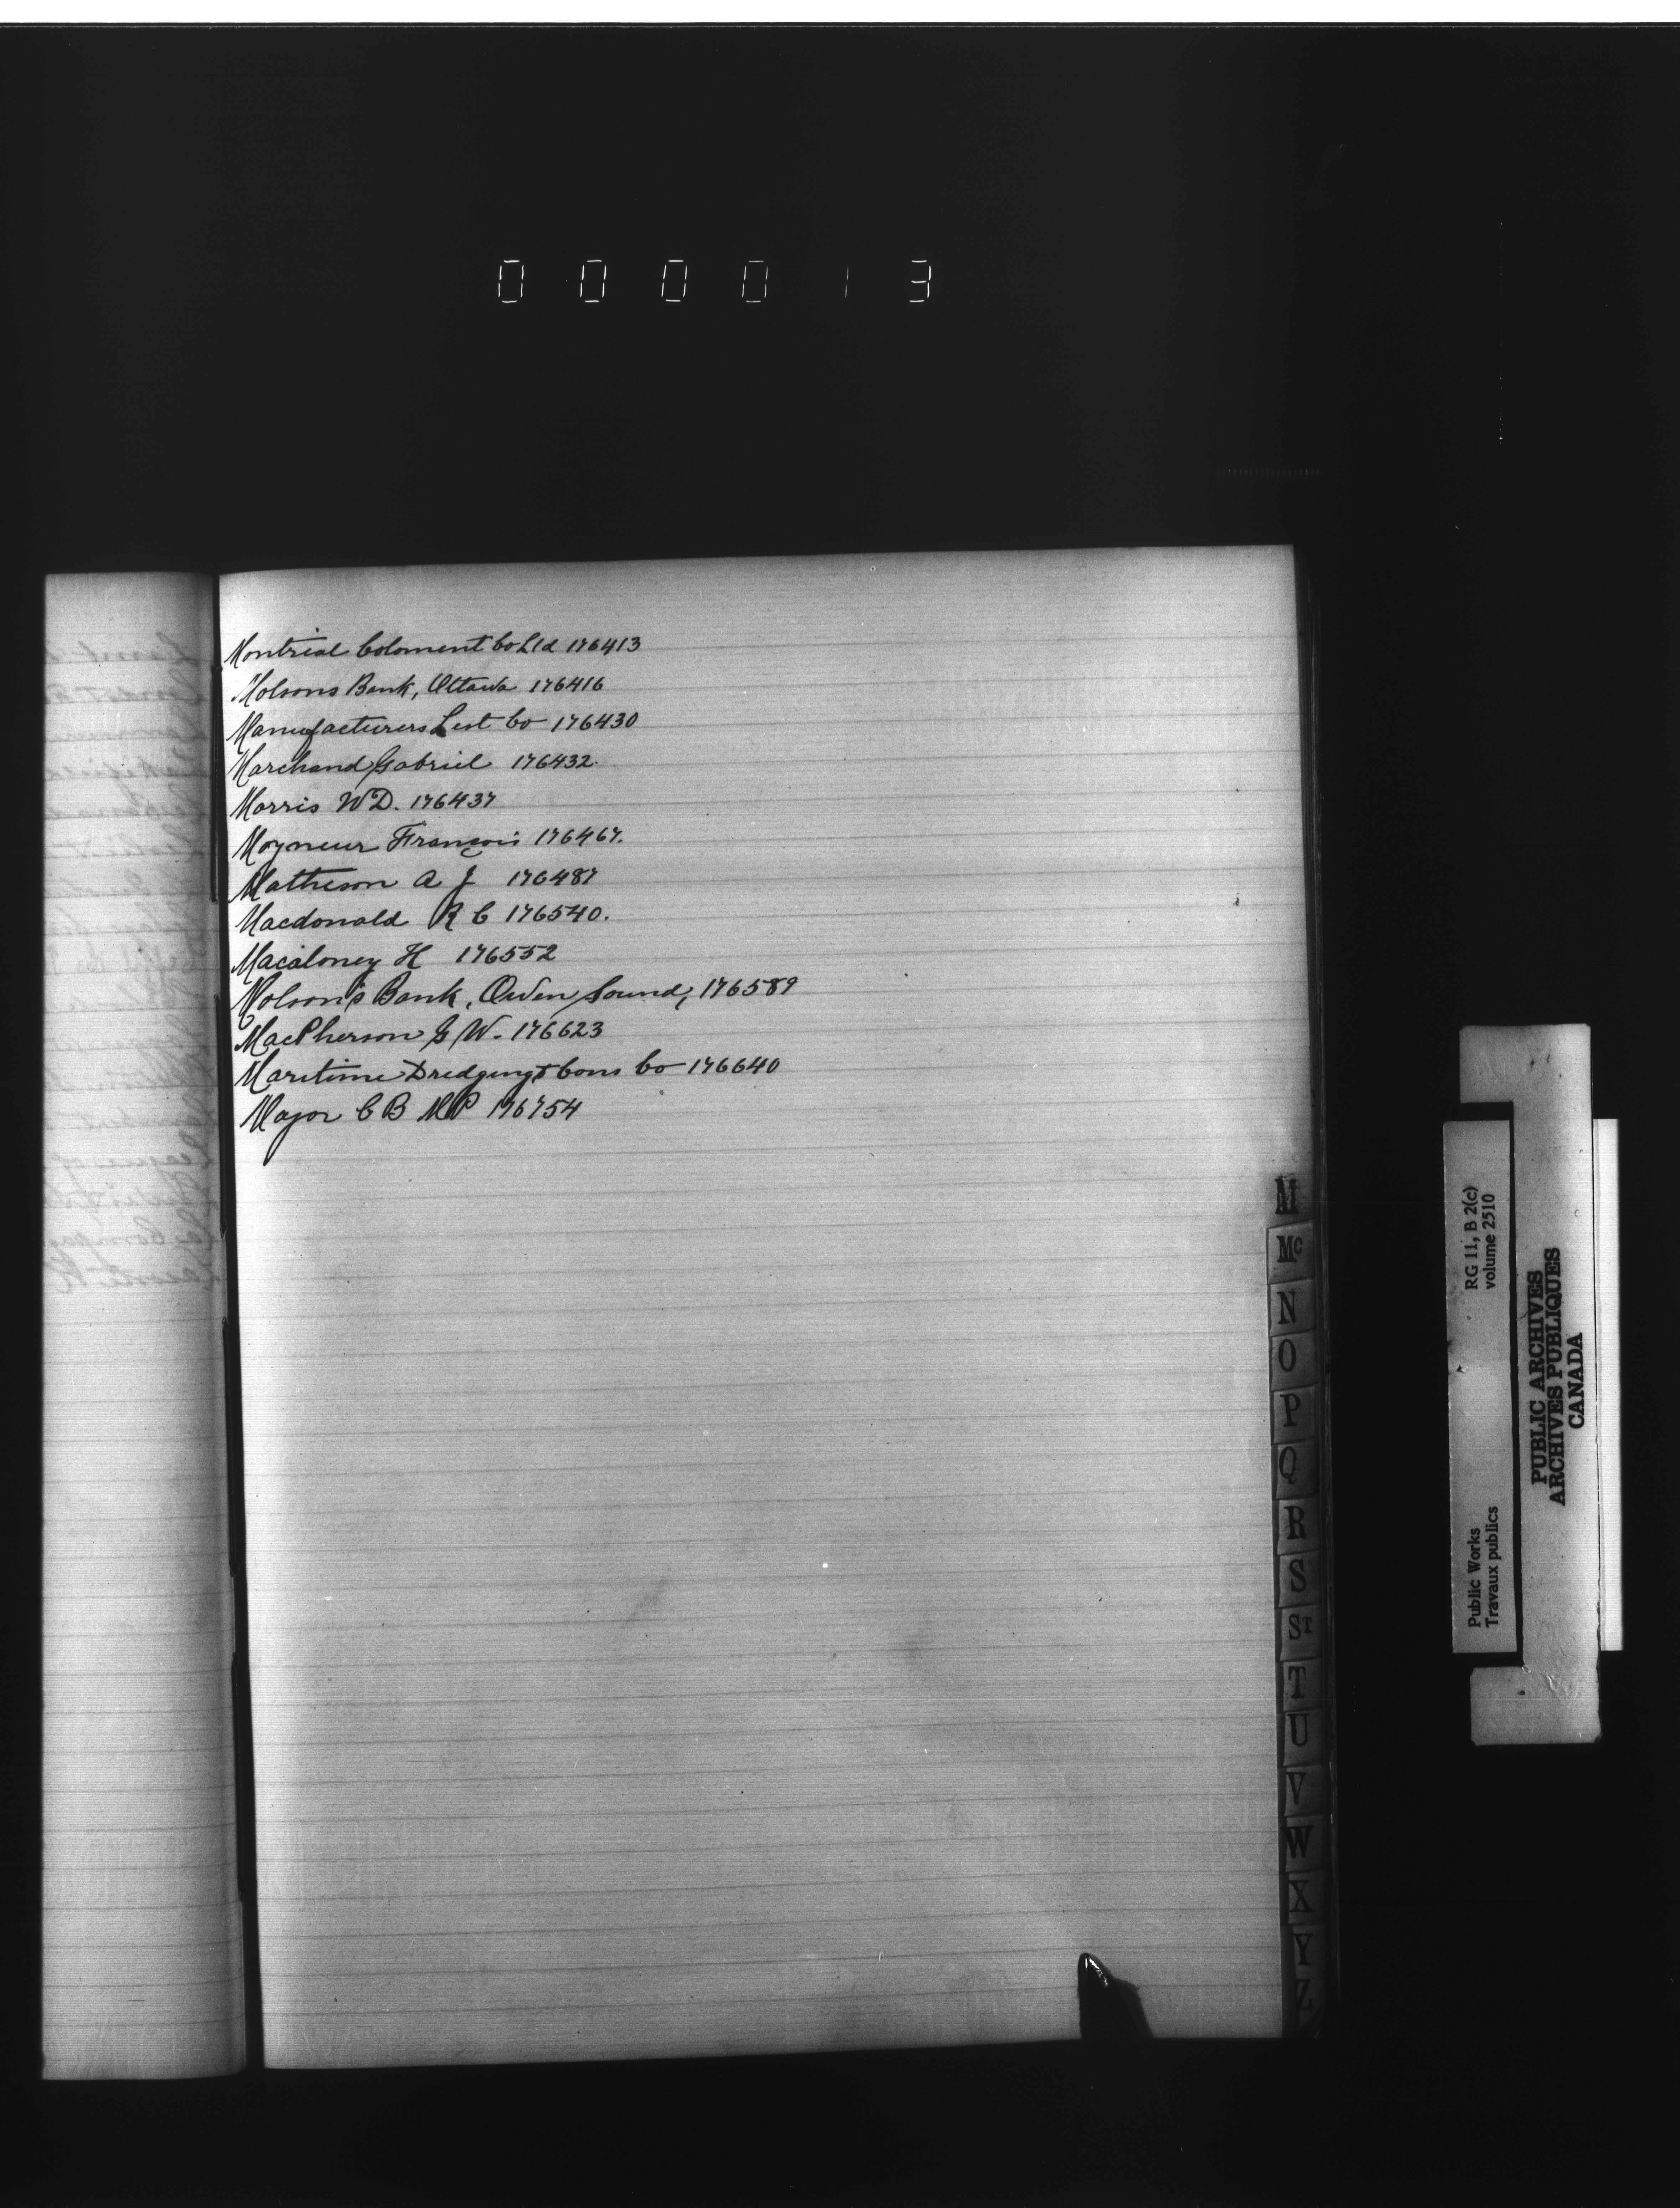 000013
Montreal Coloment Co Ltd 176413
Molsons Bank, Ottawa 176416
Manufacturers List Co 176430
Marchand Gabriel 176432
Morris W D. 176437
Moyneur François 176467.
Matheson A J 176487
Macdonald R C 176540.
Macaloney H 176552
Molson's Bank, Owen Sound, 176589
MacPherson G W. 176623
Maritime Dredging & Cons Co 176640
Major C B MP 176754
M
Mc
N
O
P
Q
R
S
ST
T
U
V
W
X
Y
Z
Public Works
Travaux publics
RG 11, B 2(c)
volume 2510
PUBLIC ARCHIVES
ARCHIVES PUBLIQUES
CANADA